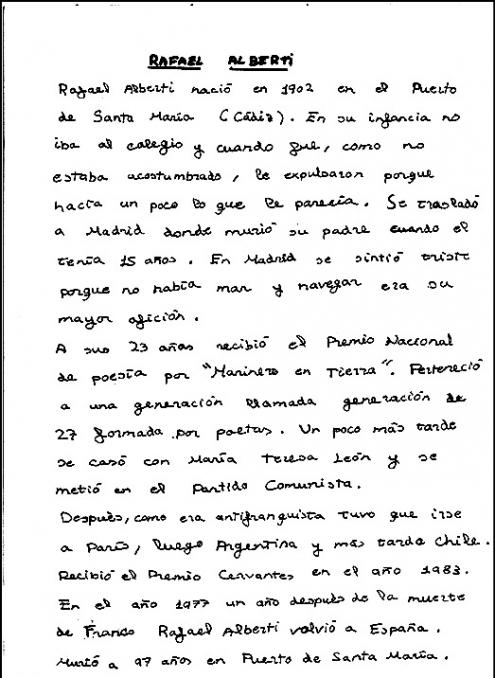 RAFAEL ALBERTI
Rafael Alberti nació en 1902 en el Puerto
de Santa María (Cádiz). En su infancia no
iba al colegio y cuando fue, como no
estaba acostumbrado, le expulsaron porque
hacía un poco lo que le parecía. Se trasladó
a Madrid donde murió su padre cuando el
tenía 15 años. En Madrid se sintió triste
porque no había mar y navegar era su
mayor afición.
A sus 23 años recibió el Premio Nacional
de poesía por "Marinero en Tierra". Perteneció
a una generación llamada generación de
27 formada por poetas. Un poco más tarde
se casó con María Teresa León y se
metió en el Partido Comunista.
Después, como era antifranquista tuvo que irse
a París, luego Argentina y más tarde Chile.
Recibió el Premio Cervantes en el año 1983.
En el año 1977 un año después de la muerte
de Franco Rafael Alberti volvió a España.
Murió a 97 años en Puerto de Santa María.